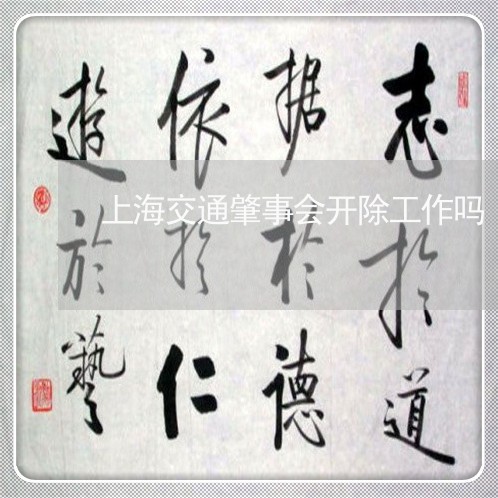 志於道
据於德
依於仁
遊於藝
上海交通肇事会开除工作吗